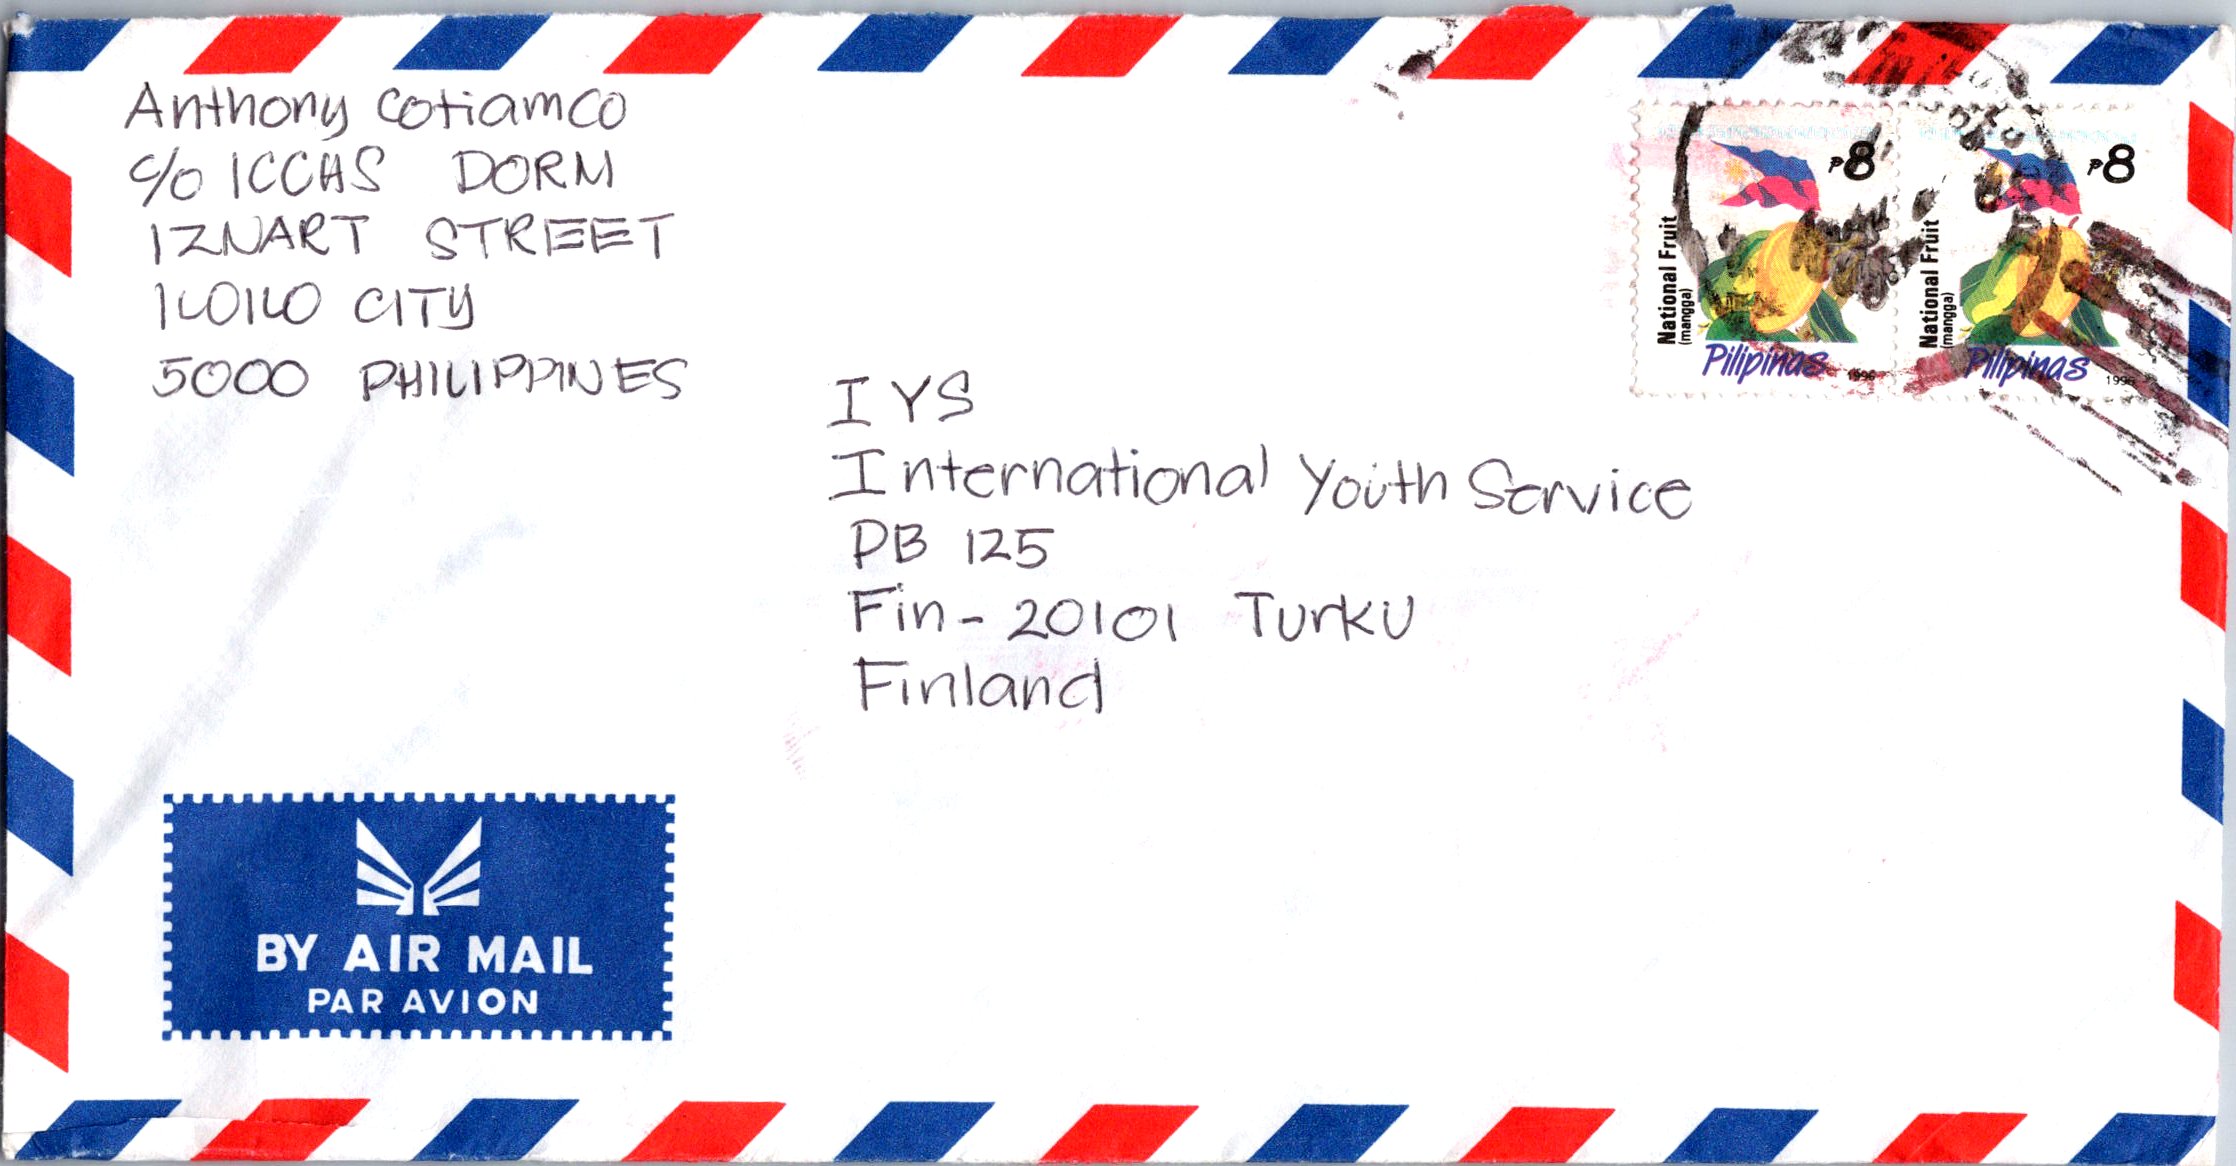 Anthony Cotiamco
c/o ICCHS DORM
IZNART STREET
ILOILO CITY
5000 PHILIPPINES
₱8
National Fruit
(mangga)
Pilipinas
1996
₱8
National Fruit
(mangga)
Pilipinas
1996
IYS
International Youth Service
PB 125
Fin - 20101 Turku
Finland
BY AIR MAIL
PAR AVION